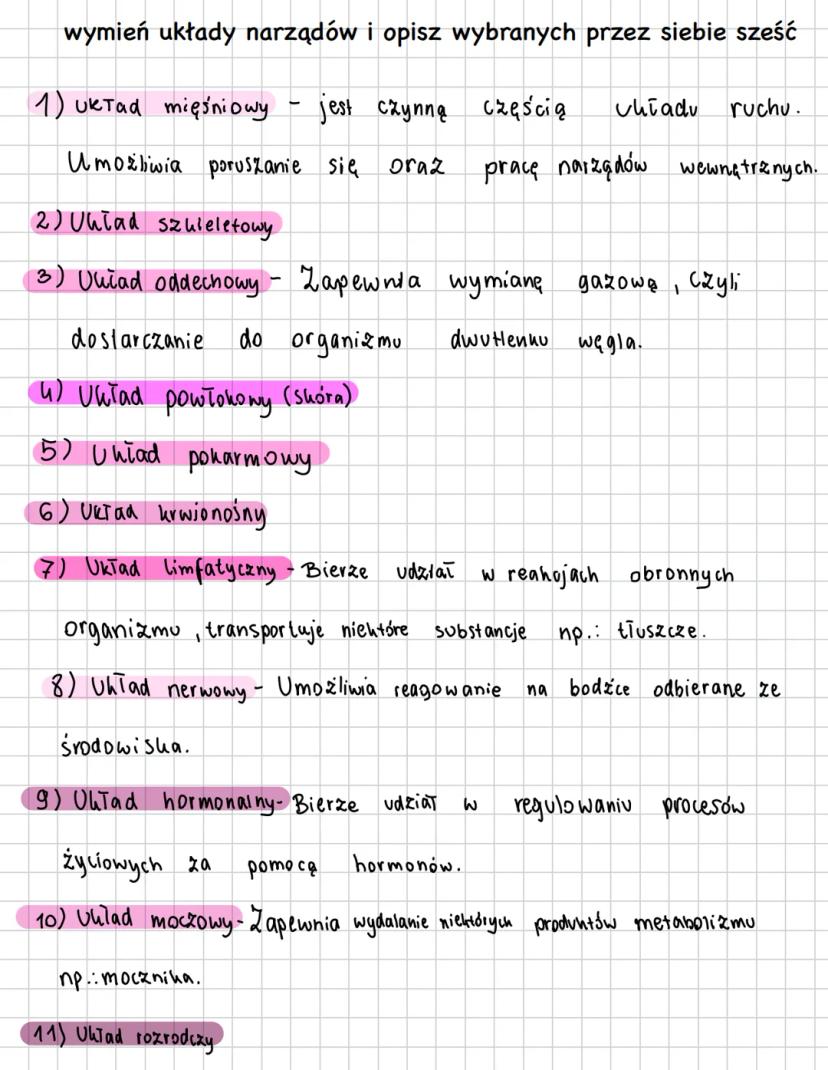 wymień układy narządów i opisz wybranych przez siebie sześć
1) Układ mięśniowy - jest czynną częścią układu ruchu.
Umożliwia poruszanie się oraz pracę narządów wewnętrznych.
2) Układ szkieletowy
3) Układ oddechowy - Zapewnia wymianę gazową, czyli
dostarczanie do organizmu dwutlenku węgla.
4) Układ powłokowy (skóra)
5) Układ pokarmowy
6) Układ krwionośny
7) Układ limfatyczny - Bierze udział w reakcjach obronnych
organizmu, transportuje niektóre substancje np.: tłuszcze.
8) Układ nerwowy - Umożliwia reagowanie na bodźce odbierane ze
środowiska.
9) Układ hormonalny - Bierze udział w regulowaniu procesów
życiowych za pomocą hormonów.
10) Układ moczowy - Zapewnia wydalanie niektórych produktów metabolizmu
np.: mocznika.
11) Układ rozrodczy